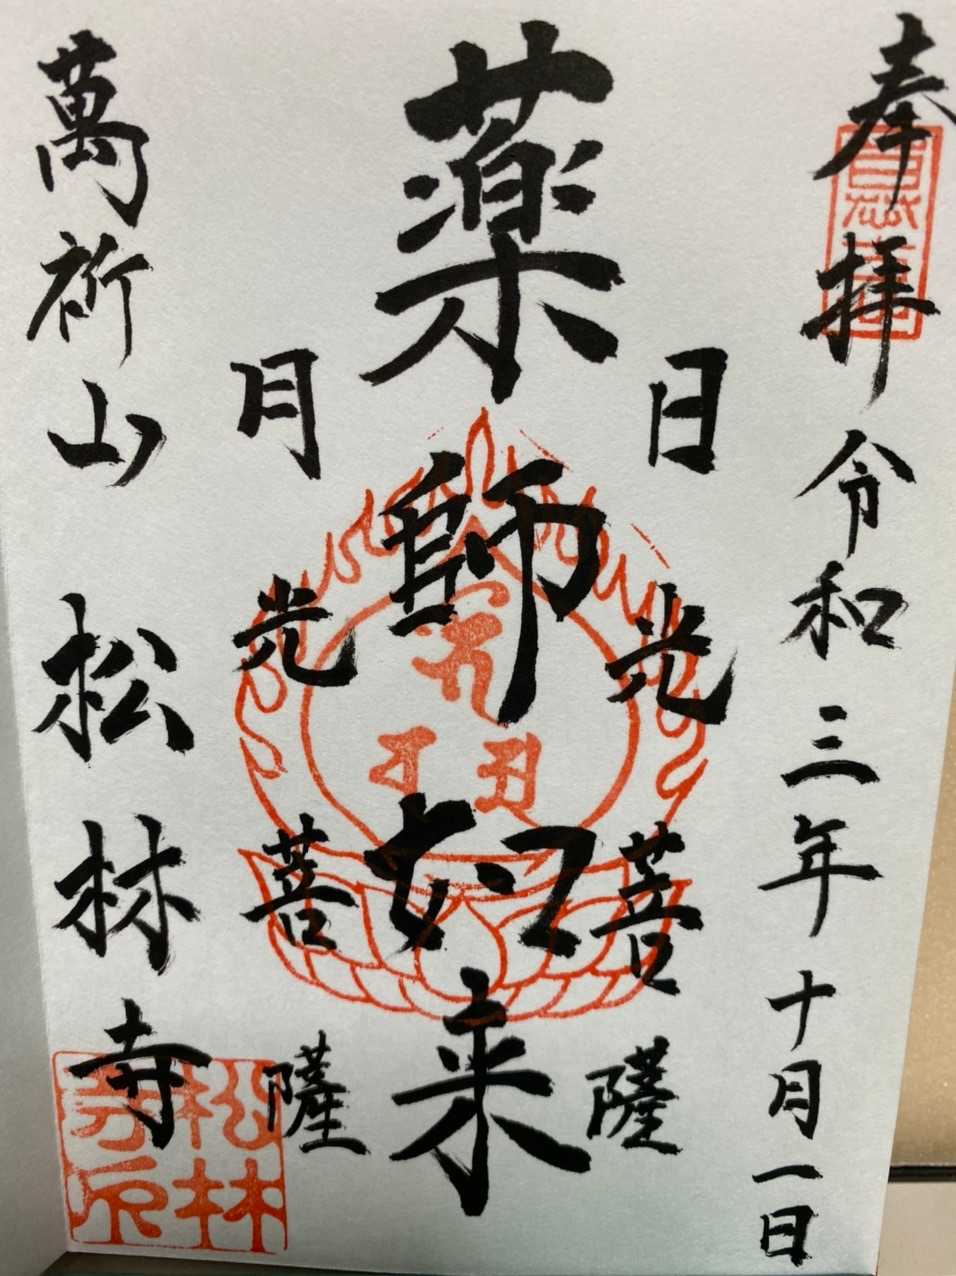 奉拝 令和三年十月一日
日光菩薩
薬師如来
月光菩薩
萬祈山 松林寺